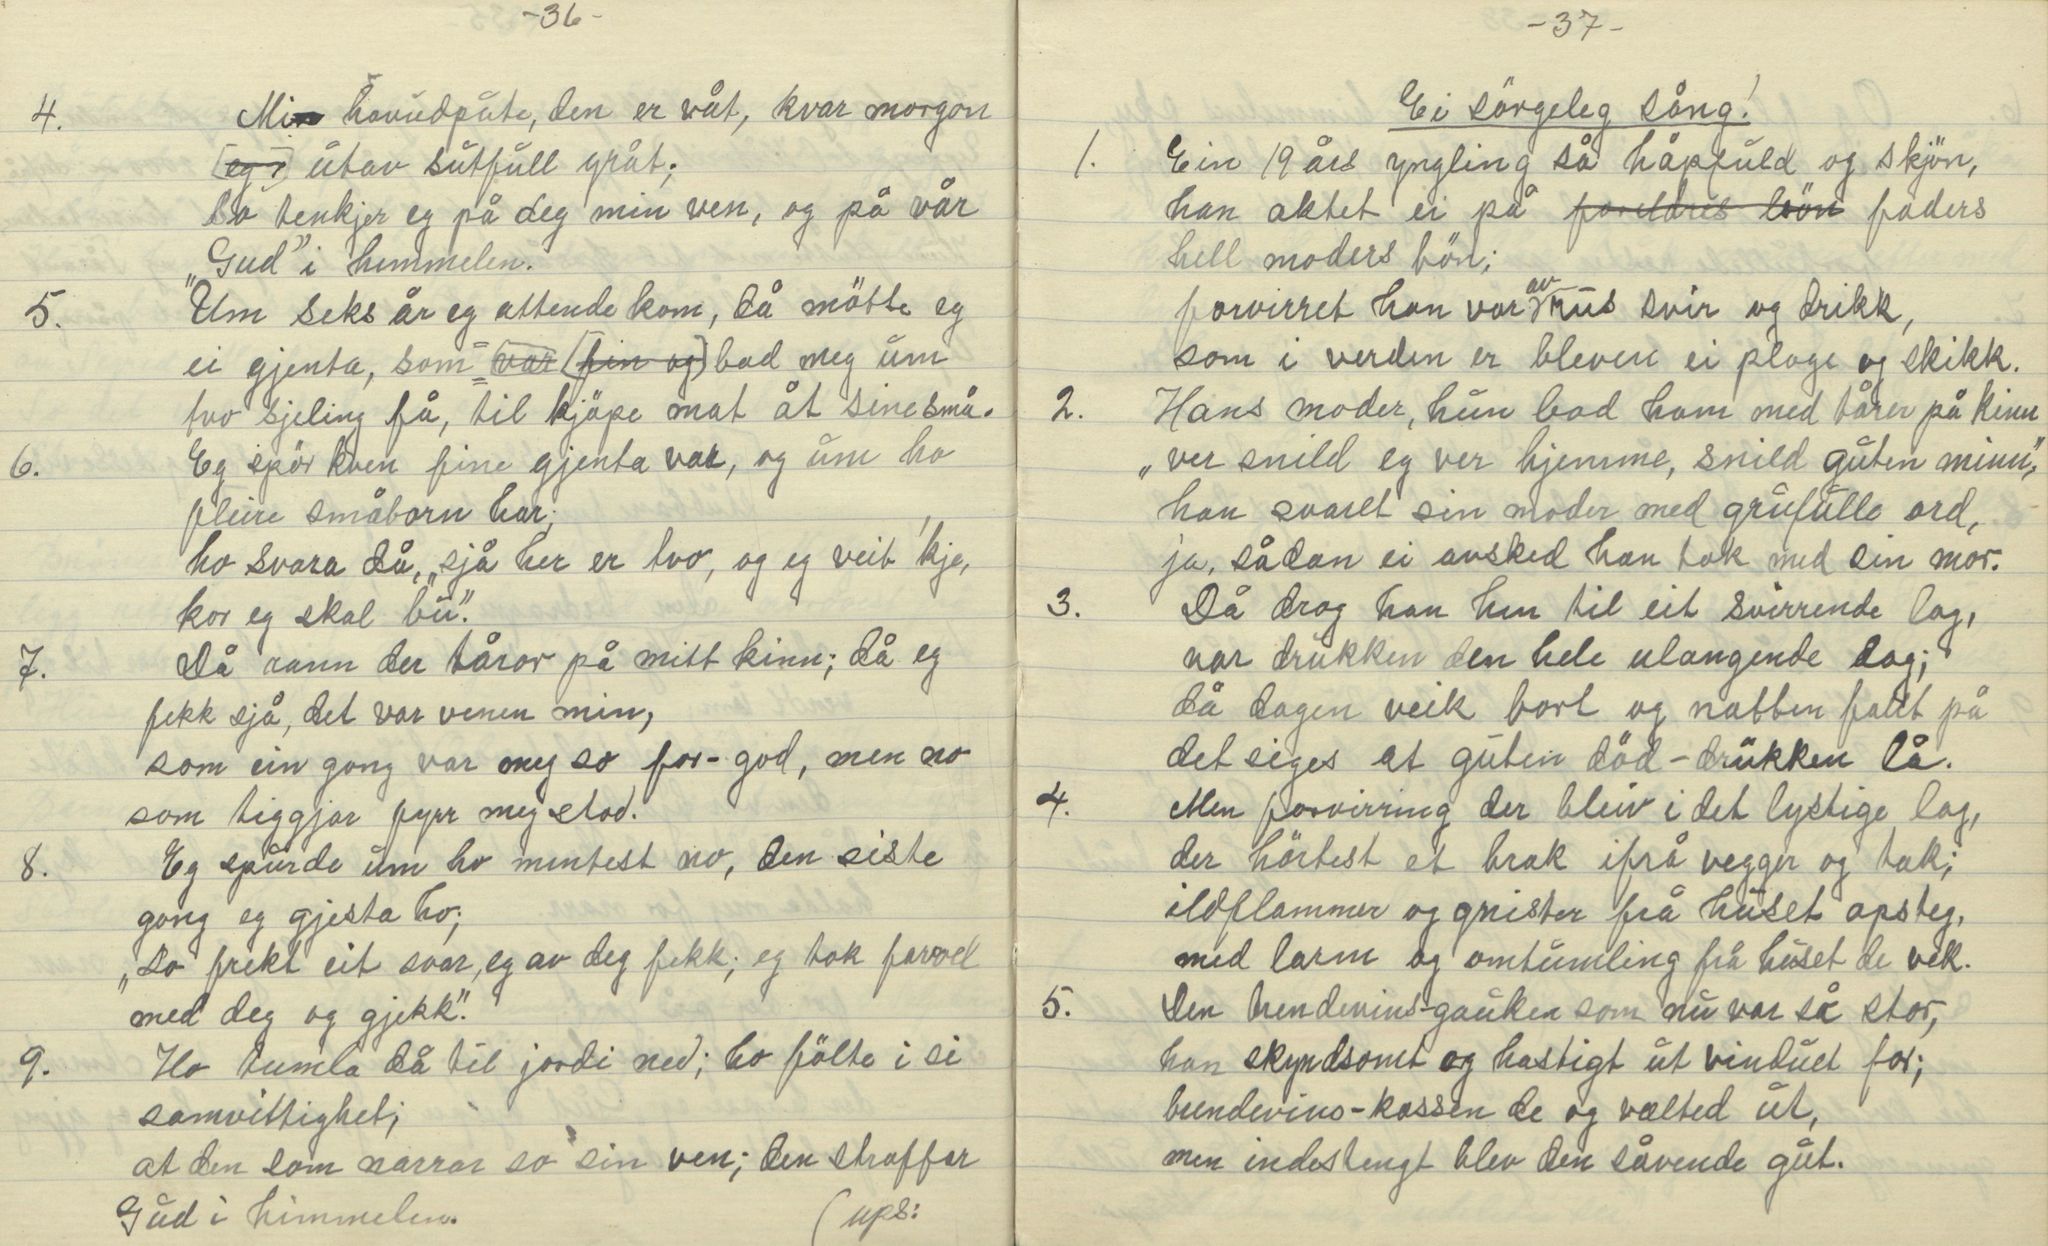 -36-
4. Min hovudpute, den er våt, kvar morgon
utav sutfull gråt;
So tenkjer eg på deg min ven, og på vår
"Gud" i himmelen.
5. Um seks år eg attende kom, då mötte eg
ei gjenta, som var fin og bad meg um
tvo sjeling få, til kjöpe mat åt sine små.
6. Eg spör kven fine gjenta var, og um ho
fleire småborn har;
ho svara då, „sjå her er tvo, og eg veit 'kje,
kor eg skal bu".
7. Då rann der tåror på mitt kinn; då eg
fekk sjå, det var venen min,
som ein gong var meg so for-god, men no
som tiggjar fyrr meg stod.
8. Eg spurde um ho mintest no, den siste
gong eg gjesta ho;
„So frekt eit svar, eg av deg fekk; eg tok farvel
med deg og gjekk".
9. Ho tumla då til jordi ned; ho fölte i si
samvittighet;
at den som narrar so sin ven; den straffar
Gud i himmelen.
(ups:
-37-
Ei sörgeleg sång!
1. Ein 19 års yngling så håpfuld og skjön,
han aktet ei på foreldres bön faders
hell moders bön;
forvirret han var av rus svir og drikk,
som i verden er bleven ei plage og skikk.
2. Hans moder, hun bad ham med tårer på kinn
„ver snild og ver hjemme, snild guten minn",
han svaret sin moder med grufulle ord,
ja, sådan ei avsked han tok med sin mor.
3. Då drog han hen til eit svirrende lag,
var drukken den hele ulangende dag;
då dagen veik bort og natten falt på
det siges at guten död-drukken lå.
4. Men forvirring der bleiv i det lystige lag,
der hörtest et brak ifrå vegger og tak;
ildflammer og gnister frå huset opsteg,
med larm og omtumling frå huset de vek.
5. Den brendevins-gauken som nu var så stor,
han skyndsomt og hastigt ut vinduet for;
brendevins-kassen de og vælted ut,
men indestengt blev den såvende gut.